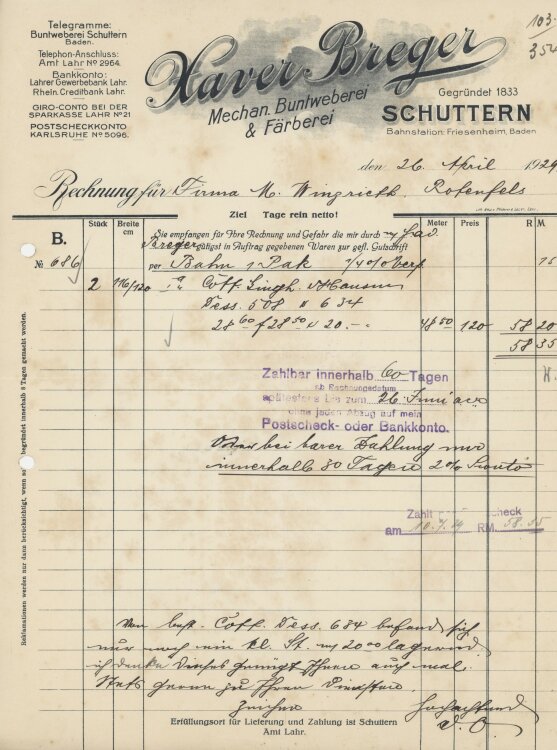 Telegramme:
Buntweberei Schuttern
Baden.
Telephon-Anschluss:
Amt Lahr Nº 2964.
Bankkonto:
Lahrer Gewerbebank Lahr.
Rhein. Creditbank Lahr.
GIRO-CONTO BEI DER
SPARKASSE LAHR Nº 21
POSTSCHECKKONTO
KARLSRUHE Nº 5096.
Xaver Breger
Mechan. Buntweberei
& Färberei
Gegründet 1833
SCHUTTERN
Bahnstation: Friesenheim, Baden
103
354
den 26. April 1929
Rechnung für Firma M. Wingrieth, Rotenfels
Ziel Tage rein netto!
Stück Breite cm Meter Preis R M
B.
Sie empfangen für Ihre Rechnung und Gefahr die mir durch
Breger gütigst in Auftrag gegebenen Waren zur gefl. Gutschrift
№ 686 per Bahn 1 Pak
15
2 116/120 Cött. Singh.
Dess. 508 u 634
28 60 f 28 50 u 20.— 48 50 120 58 20
58 35
Zahlbar innerhalb 60 Tagen
ab Rechnungsdatum
spätestens bis zum 26 Juni
ohne jeden Abzug auf mein
Postscheck- oder Bankkonto.
Oder bei barer Zahlung nur
innerhalb 30 Tagen 2% Skonto
Zahlt heck
am 10.7.29 RM. 58.35
Reklamationen werden nur dann berücksichtigt, wenn so begründet innerhalb 8 Tagen gemacht werden.
Von best. Cött. Dess. 634 befand sich
nur noch ein kl. St. 20 00 lagernd,
ich denke dieses genügt Ihnen auch mal.
Stets gerne zu Ihren Diensten
zeichne Hochachtend
Erfüllungsort für Lieferung und Zahlung ist Schuttern
Amt Lahr.